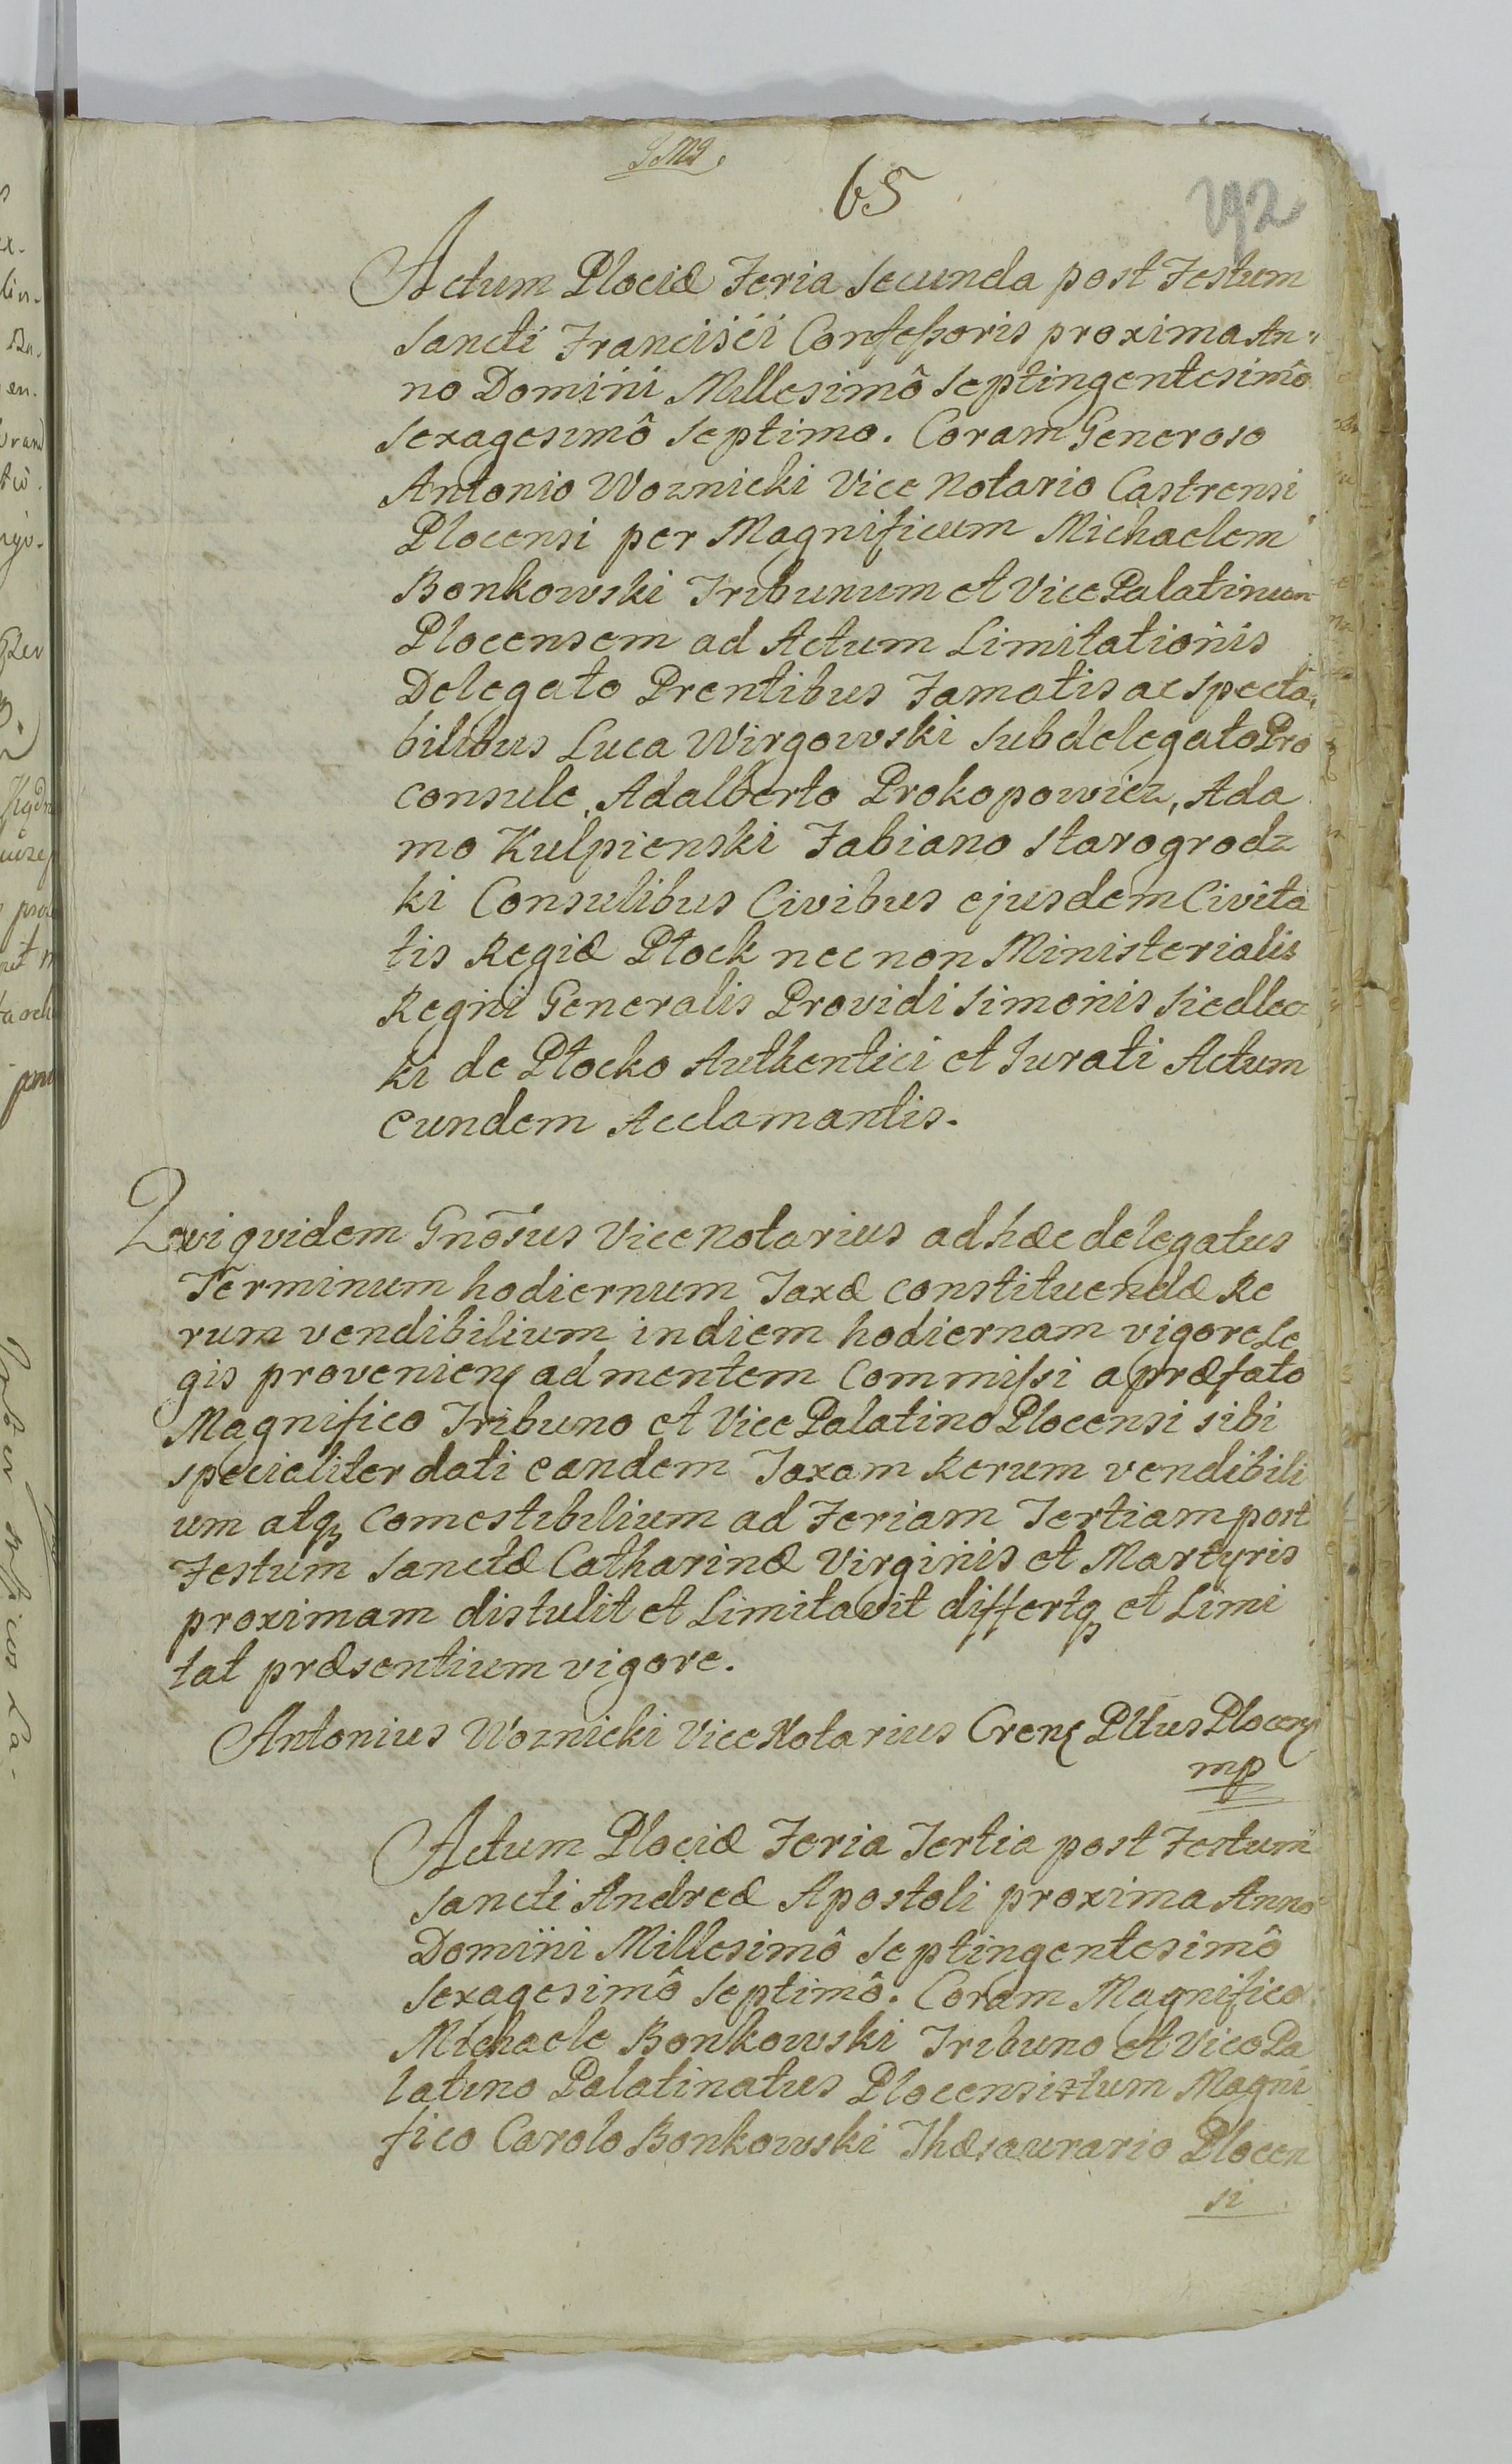 65
192
Actum Plociæ Feria Secunda post Festum
Sancti Francisci Confessoris proxima An,,
no Domini Millesimô Septingentesimô
Sexagesimô Septimo. Coram Generoso
Antonio Woznicki Vice Notario Castrensi
Plocensi per Magnificum Michaelem
Bonkowski Tribunum et Vice Palatinum
Plocensem ad Actum Limitationis
Delegato Prentibus Famatis ac Specta,
bilibus Luca Wirgowski Subdelegato Pro
consule, Adalberto Prokopowicz, Ada
mo Kulpienski Fabiano Starogrodz
ki Consulibus Civibus ejusdem Civita
tis Regiæ Płock nec non Ministerialis
Regni Generalis Providi Simonis Siedlec
ki de Płocko Authentici et Jurati Actum
eundem Acclamantis.
Qvi qvidem Gnosus Vice Notarius ad hæc delegatus
Terminum hodiernum Taxæ constituendæ Re
rum vendibilium in diem hodiernam vigore Le
gis proveniens ad mentem Commissi a præfato
Magnifico Tribuno et Vice Palatino Plocensi sibi
specialiter dati eandem Taxam Rerum vendibili
um atq3 Comestibilium ad Feriam Tertiam post
Festum Sanctæ Catharinæ Virginis et Martyris
proximam distulit et Limitavit differtq3 et Limi
tat præsentium vigore.
Antonius Woznicki Vice Notarius Crens Pltus Plocens
mp
Actum Plociæ Feria Tertia post Festum
Sancti Andreæ Apostoli proxima Anno
Domini Millesimô Septingentesimô
Sexagesimô Septimô. Coram Magnifico
Michaele Bonkowski Tribuno et Vice Pa
latino Palatinatus Plocensis tum Magni
fico Carolo Bonkowski Thæsaurario Plocen
si